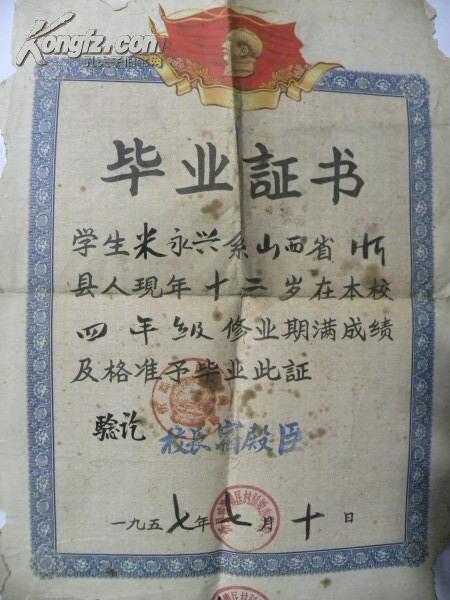 Kongfz.com
孔夫子旧书网
毕业証书
学生米永兴系山西省忻
县人现年十二岁在本校
四年级修业期满成绩
及格准予毕业此証
验讫
校长 殿臣
一九五七年七月十日